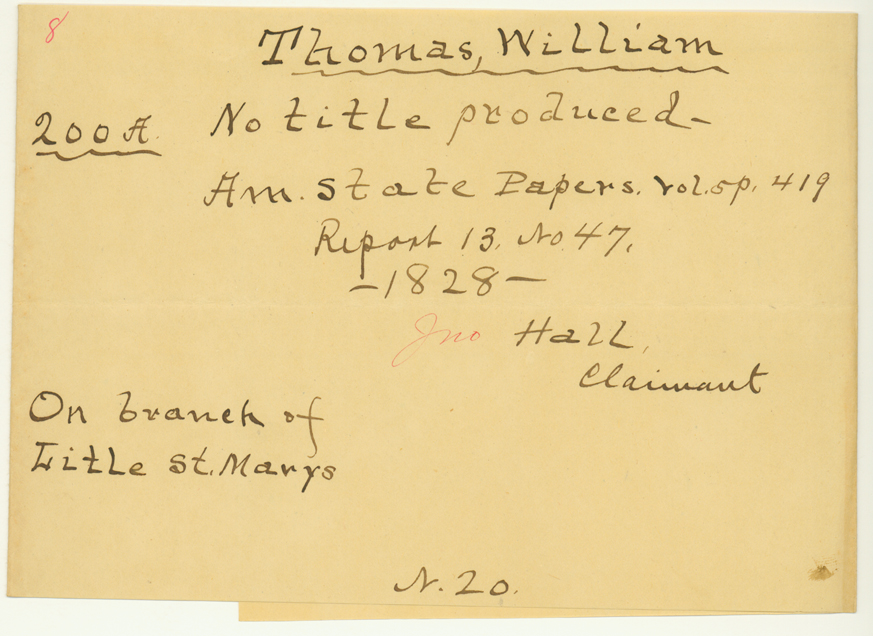 8
Thomas, William
200 A. No title produced-
Am. State Papers. Vol. 5 p. 419
Report 13. No 47.
-1828-
Jno Hall,
Claimant
On branch of
Litle St. Marys
N. 20.